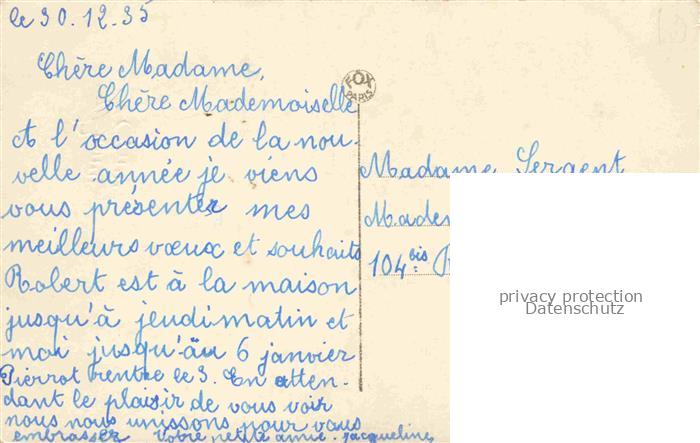 le 30.12.35
Chère Madame,
Chère Mademoiselle
A l'occasion de la nou-
velle année je viens
vous présenter mes
meilleurs vœux et souhaits
Robert est à la maison
jusqu'à jeudi matin et
moi jusqu'au 6 janvier
Pierrot rentre le 3. En atten-
dant le plaisir de vous voir
nous nous unissons pour vous
embrasser Votre petite amie. Jacqueline
FOX
PARIS
Madame Sergent
Madem
104 bis
privacy protection
Datenschutz